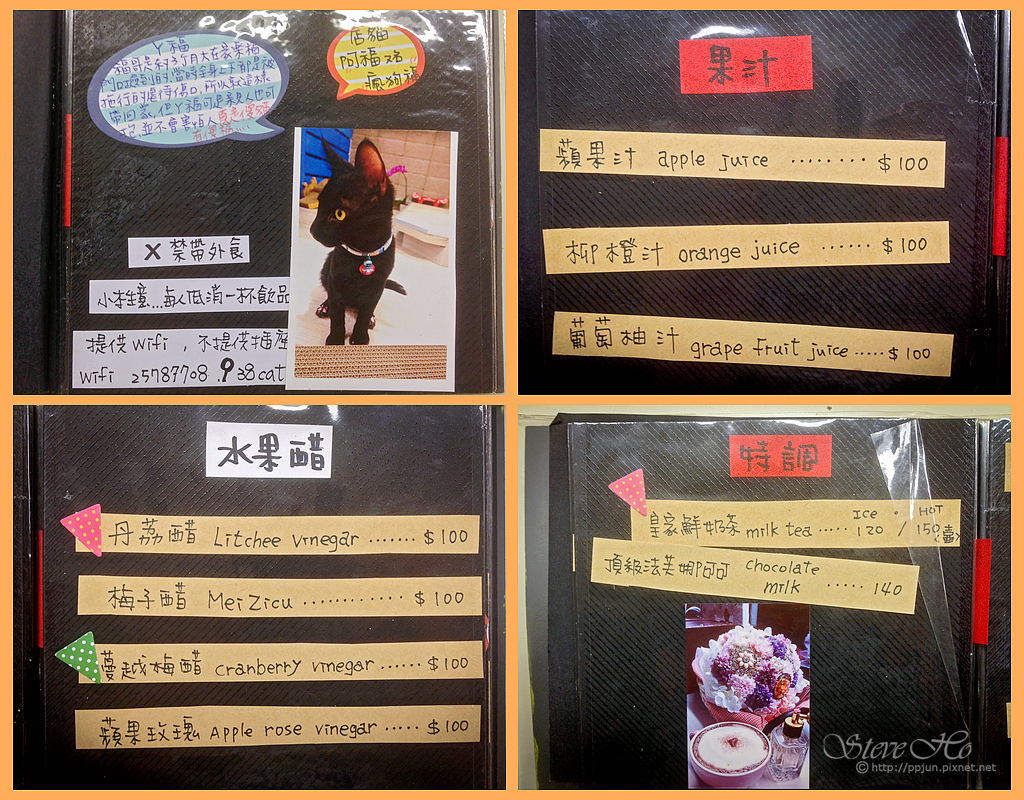 丫福
福哥是約3個月大在家樂福
門口撿到的,當時全身上下都是被
拖行的虐待傷口,所以就這樣
帶回家,但丫福可是親人也可
抱,並不會害怕人
店貓
阿福又名
瘋狗福
X 禁帶外食
小本生意...每人低消一杯飲品
提供wifi , 不提供插座
wifi 25787708 938cat
果汁
蘋果汁 apple juice ········ $100
柳橙汁 orange juice ······ $100
葡萄柚汁 grape fruit juice ····· $100
水果醋
丹荔醋 Litchee vinegar ······ $100
梅子醋 Mei Zi cu ············ $100
蔓越梅醋 cranberry vinegar ······ $100
蘋果玫瑰 Apple rose vinegar ····· $100
特調
Ice · HOT
皇家鮮奶茶 milk tea ····· 120 / 150 (壺)
頂級法芙娜可可 chocolate
milk ····· 140
Steve Ho
© http://ppjun.pixnet.net